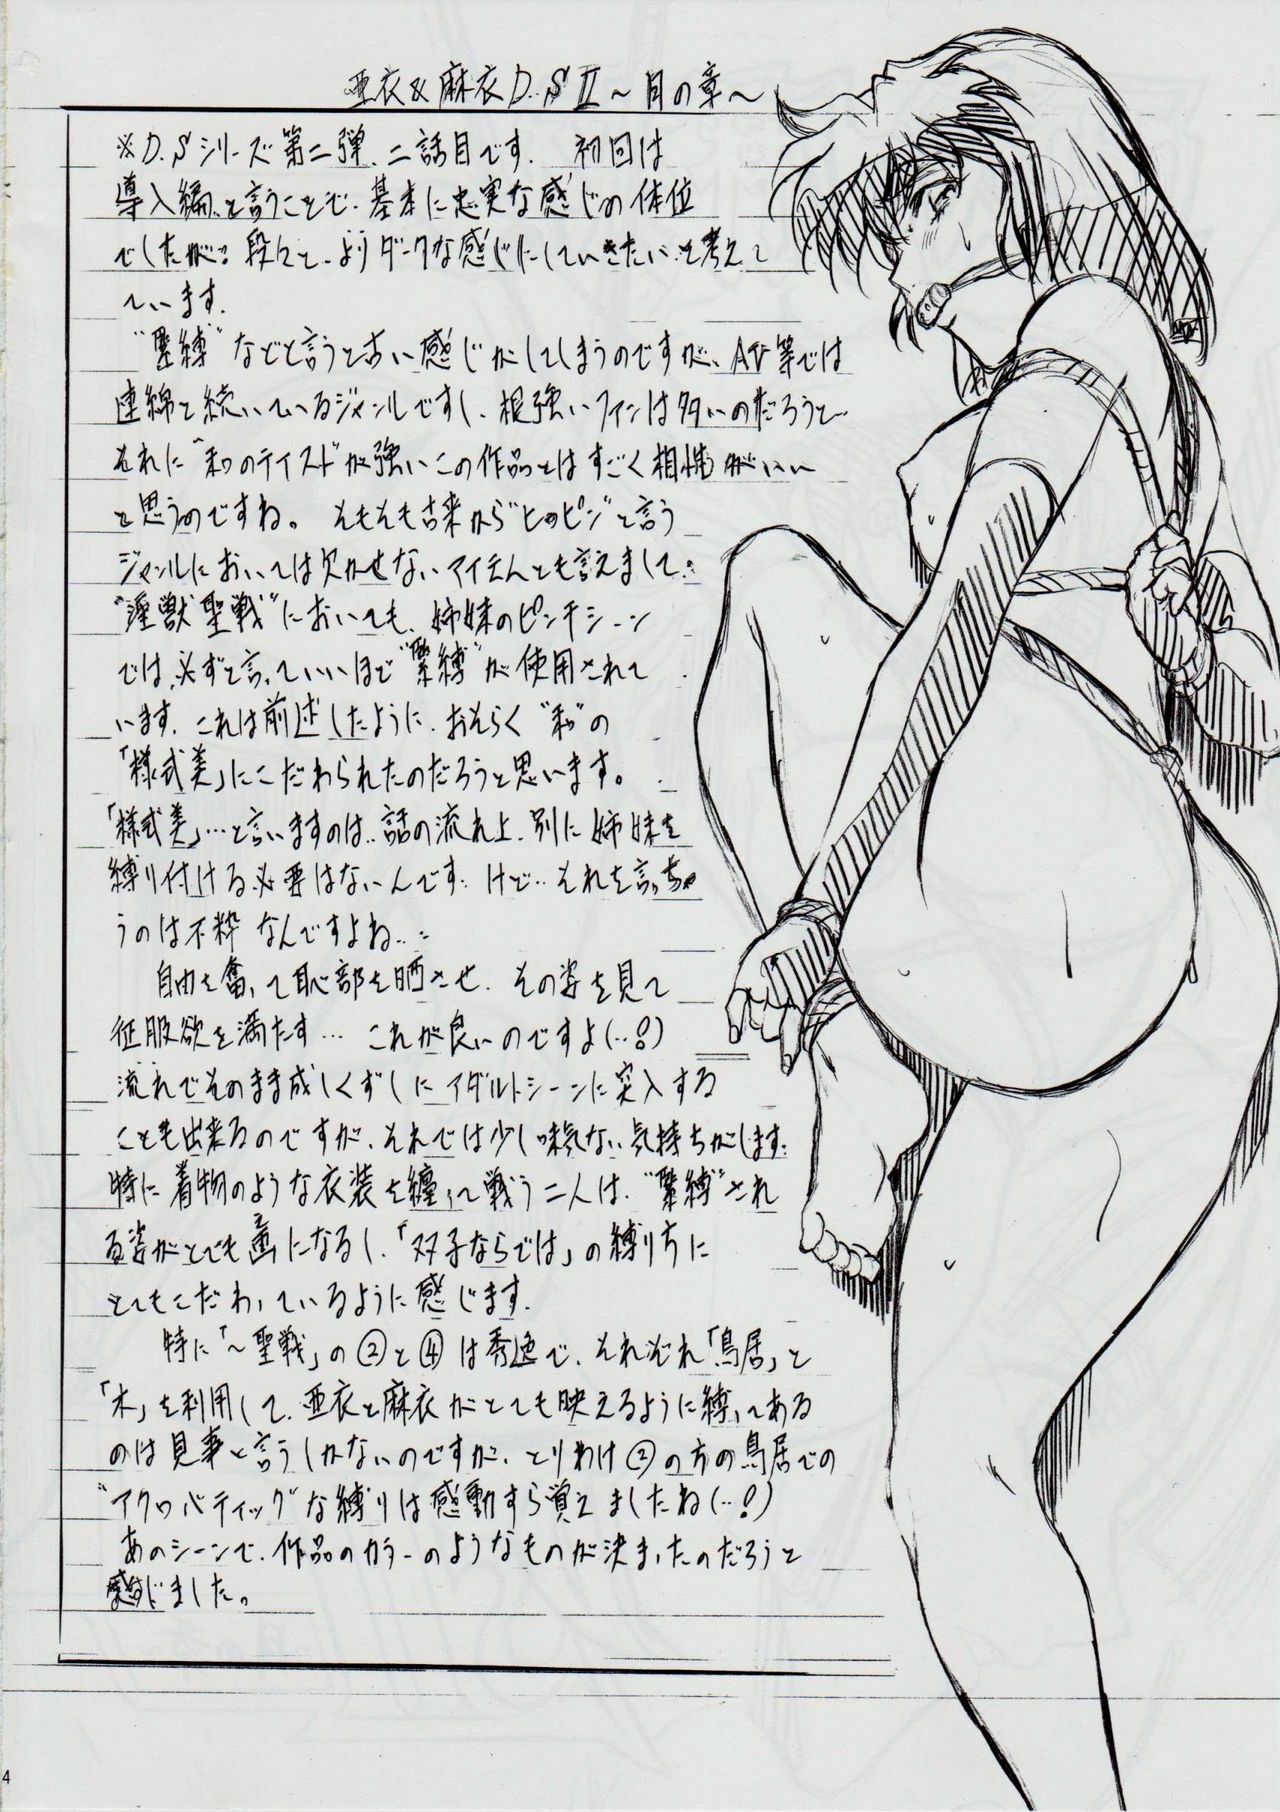 亜衣&麻衣D.SⅡ～月の章～
※D.Sシリーズ第二弾、二話目です。 初回は
導入編と言うことで、基本に忠実な感じの体位
でしたが… 段々と、よりダークな感じにしていきたいと考えて
ています。
"緊縛"などと言うと古い感じがしてしまうのですが、AV等では
連綿と続いているジャンルですし、根強いファンは多いのだろうと…
それに"和のテイスト"が強いこの作品とはすごく相性がいい
と思うのですね。 そもそも古来から"ヒロピン"と言う
ジャンルにおいては欠かせないアイテムとも言えまして…
"淫獣聖戦"においても、姉妹のピンチシーン
では、必ずと言っていいほど"緊縛"が使用されて
います。これは前述したように、おそらく"和"の
「様式美」にこだわられたのだろうと思います。
「様式美」…と言いますのは、話の流れ上、別に姉妹を
縛り付ける必要はないんです… けど… それを言っちゃ
うのは不粋 なんですよね…
自由を奪って恥部を晒させ、その姿を見て
征服欲を満たす… これが良いのですよ(…!)
流れでそのまま成しくずしにアダルトシーンに突入する
ことも出来るのですが、それでは少し味気ない気持ちがします…
特に着物のような衣装を纏って戦う二人は、"緊縛"され
る姿がとても画になるし、「双子ならでは」の縛り方に
とてもこだわっているように感じます。
特に「～聖戦」の②と④は秀逸で、それぞれ「鳥居」と
「木」を利用して、亜衣と麻衣がとても映えるように縛ってある
のは見事と言うしかないのですが、とりわけ②の方の鳥居での
"アクロバティック"な縛りは感動すら覚えましたね(…!)
あのシーンで、作品のカラーのようなものが決まったのだろうと
感じました。
4